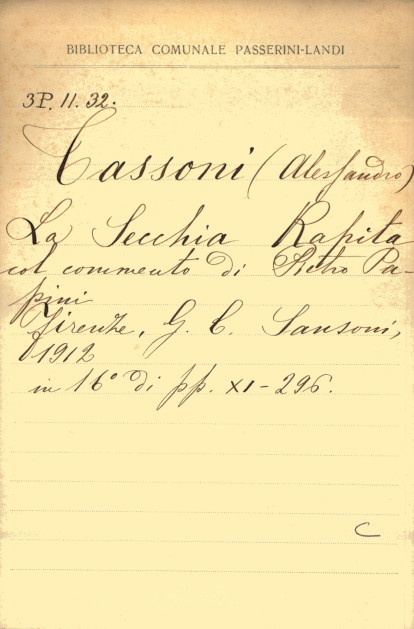 BIBLIOTECA COMUNALE PASSERINI-LANDI
3P. 11. 32.
Tassoni (Alessandro)
La Secchia Rapita
col commento di Pietro Pa-
pini
Firenze, G. C. Sansoni,
1912
in 16° di pp. XI-296.
C